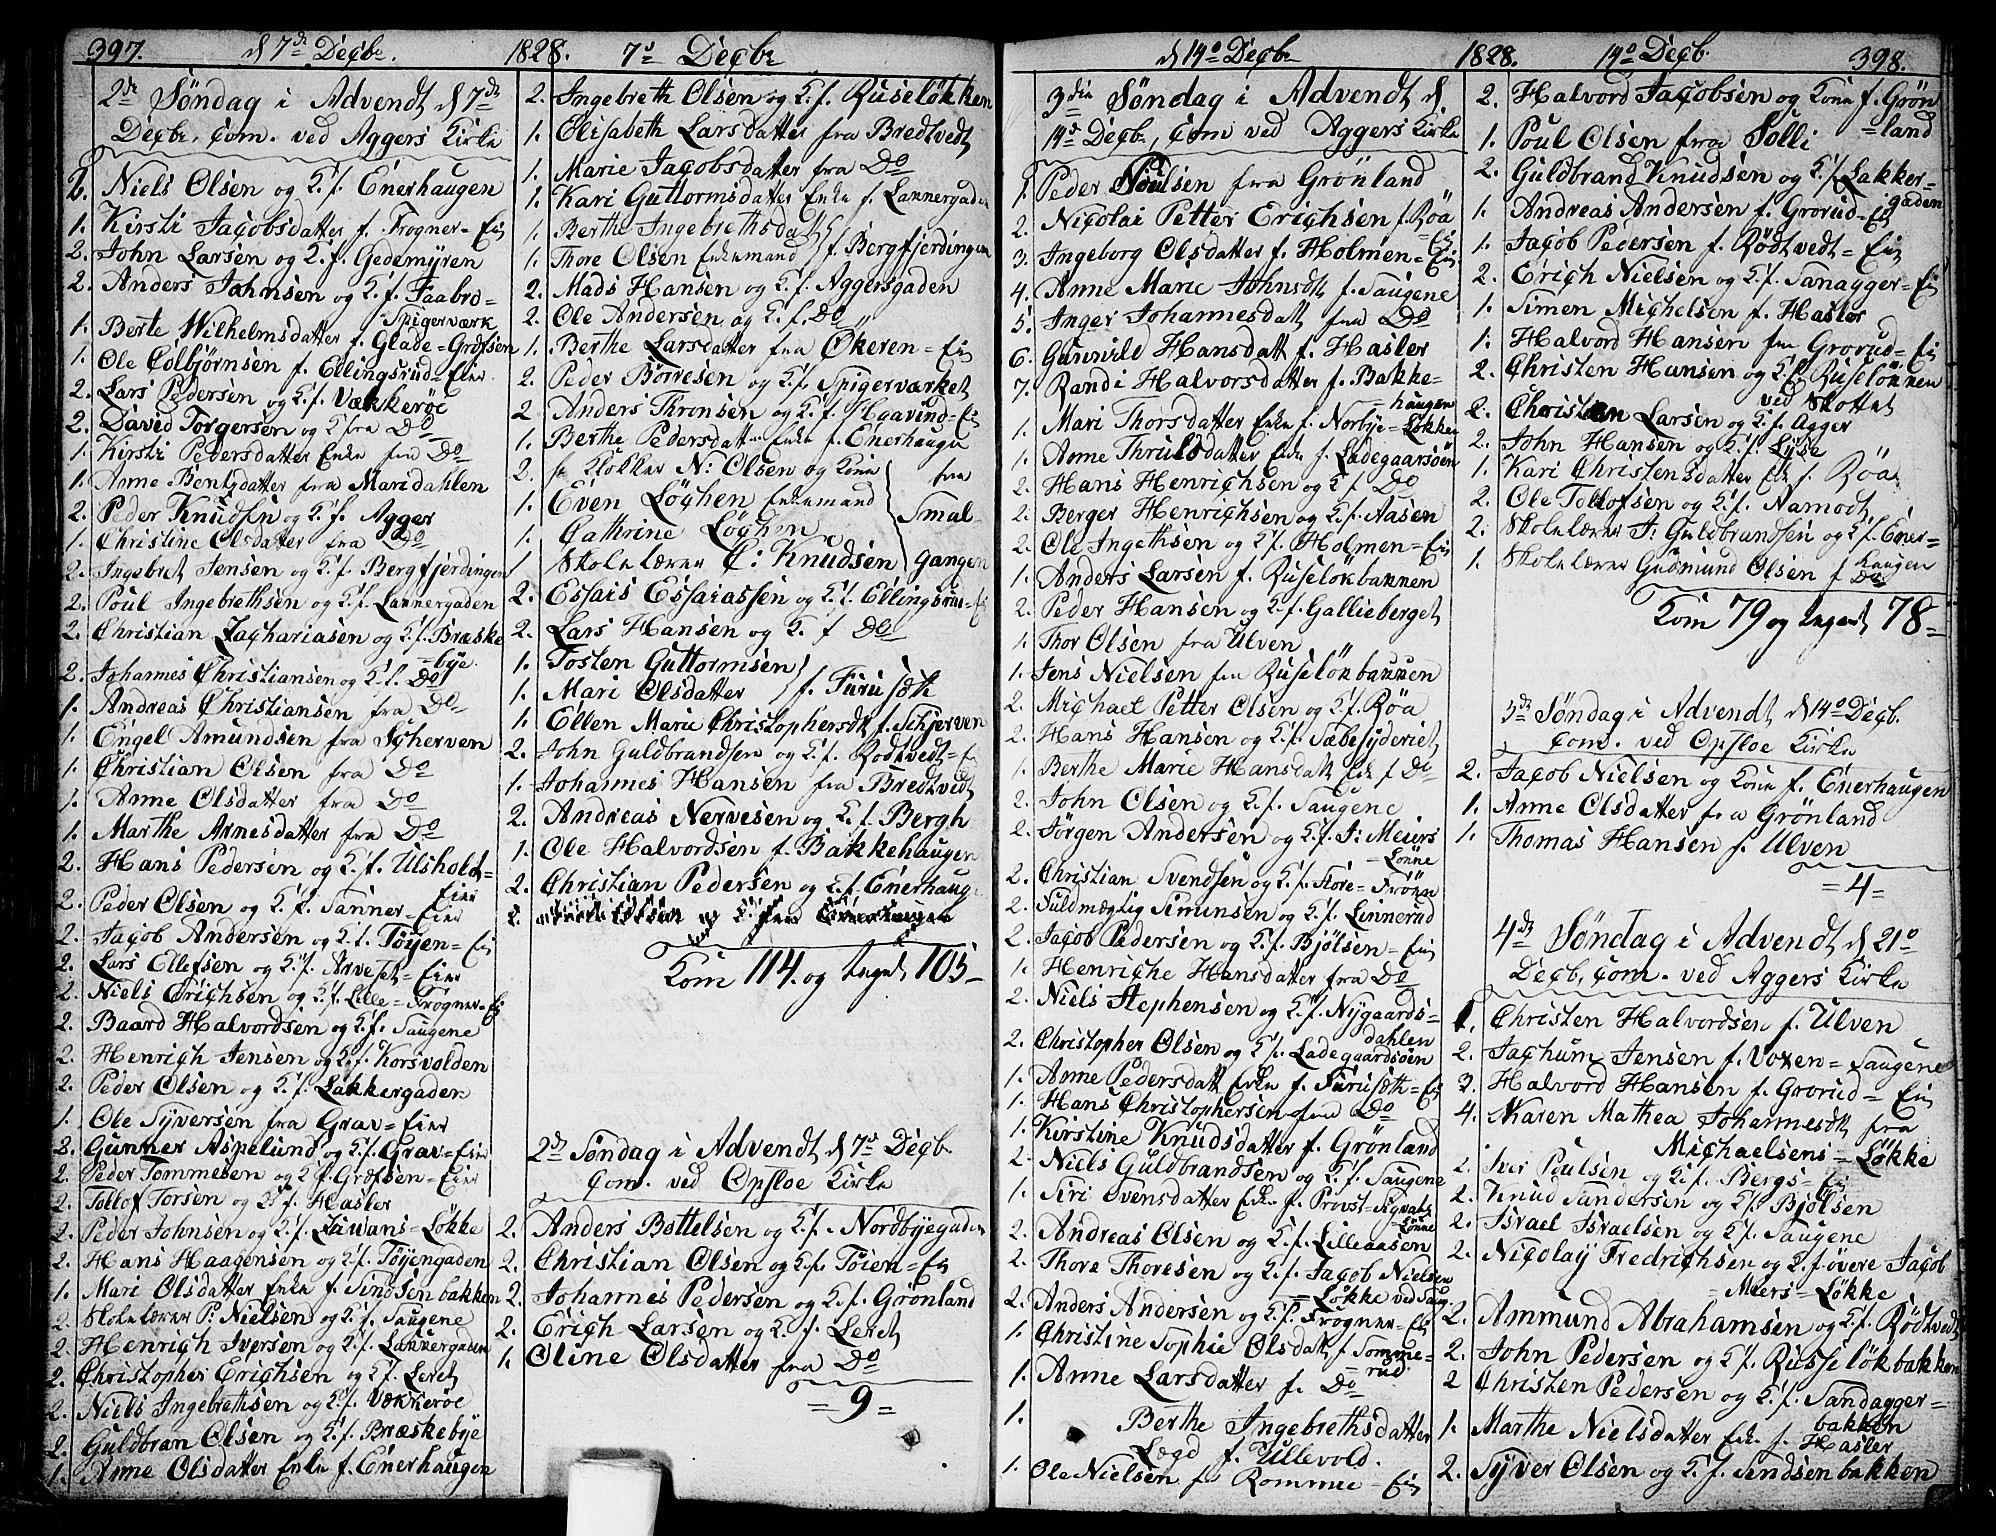 397. d 7de Decbr. 1828. 7de Decbr
2de Søndag i Advendt d 7de
Decbr. Com. ved Aggers Kirke
2. Niels Olsen og K. f. Enerhaugen
1. Kirsti Jacobsdatter f. Frogner-Eie
2. John Larsen og K. f. Gedemyren
2. Anders Jahnsen og K. f. Faabro-
Spigerværk
1. Berte Wilhelmsdatter f. Glads-Grofsen
1. Ole Colbjørnsen f. Ellingsrud-Eier
2. Lars Pedersen og K. f. Vækkerøe
2. David Torgersen og K fra Do
1. Kirsti Pedersdatter Enke fra Do
1. Anne Bentsdatter fra Maridahlen
2. Peder Knudsen og K. f. Agger
1. Christine Olsdatter fra Do
2. Ingebret Jensen og K. f. Bergfjerdingen
2. Poul Ingebrethsen og K. f. Lannergaden
2. Christian Zachariasen og K. f. Bræske-
bye.
2. Johannes Christiansen og K. f. Do
1. Andreas Christiansen fra Do
1. Engel Amundsen fra Scherven
1. Christian Olsen fra Do
1. Anne Olsdatter fra Do
1. Marthe Arnesdatter fra Do
2. Hans Pedersen og K. f. Ulsholt-
Eier
2. Peder Olsen og K. f. Tanner-Eier
2. Jacob Andersen og K. f. Tøyen-Eie
2. Lars Ellefsen og K. f. Arveset-Eier
2. Niels Erichsen og K. f. Lille-Frogner-Eie
2. Baard Halvordsen og K. f. Saugene
2. Henrich Jensen og K. f. Korsvolden
2. Peder Olsen og K. f. Lakkergaden
1. Ole Syversen fra Grav-Eier
2. Gunner Aspelund og K. f. Grav-Eier
2. Peder Tommesen og K f. Grofsen-Eier
2. Tollof Torsen og K. f. Hasler
2. Peder Johnsen og K. f. Lawans-Løkke
2. Hans Haagensen og K. f. Tøyengaden
1. Mari Olsdatter Enke f. Sindsenbakken
2. Skolelærer P. Nielsen og K. f. Saugene
2. Henrich Iversen og K. f. Lakkergaden
2. Christopher Erichsen og K. f. Leret
2. Niels Ingebrethsen og K. f. Vækkerøe
2. Guldbran Olsen og K. f. Bræskebye
1. Anne Olsdatter Enke f. Enerhaugen
2. Ingebreth Olsen og K. f. Ruseløkken
1. Elisabeth Larsdatter fra Bredtvedt
1. Marie Jacobsdatter fra Do
1. Kari Guttormsdatter Enke f. Lannergaden
1. Berthe Ingebrethsdatt
1. Thore Olsen Enkemand f. Bergfjerdingen
2. Mads Hansen og K. f. Aggersgaden
2. Ole Andersen og K. f. Do
1. Berthe Larsdatter fra Økeren-Eie
2. Peder Børresen og K. f. Spigerværket
2. Anders Thronsen og K. f. Haavind-Eie
1. Berthe Pedersdatter Enke f. Enerhaugen
2. Hr Klokker N: Olsen og Kone
1. Even Løchen Enkemand
1. Cathrine Løchen
1. Skolelærer C: Knudsen
fra Smal-gangen
2. Essais Essaiassen og K. f. Ellingsrud-Eie
2. Lars Hansen og K. f Do
1. Tosten Guttormsen
1. Mari Olsdatter f. Furuseth
1. Ellen Marie Christophersdt f. Schjerven
2. John Guldbrandsen og K. f. Rødtvedt-E
1. Johannes Hansen fra Bredtvedt
2. Andreas Nervesen og K. f. Bergh
1. Ole Halvordsen f. Bakkehaugen
2. Christian Pedersen og K. f. Enerhaug
Kom 114. og Ingent 105-
2de Søndag i Advendt d 7de Decb.
Com. ved Opsloe Kirke
2. Anders Bottelsen og K. f. Nordbyegaden
2. Christian Olsen og K. f. Tøien-Eie
2. Johannes Pedersen og K. f. Grønland
2. Erich Larsen og K. f. Leret
1. Oline Olsdatter fra Do
=9=
d 14de Decbr 1828. 14de Decb. 398.
3die Søndag i Advendt d.
14de Decbr, Com ved Aggers Kirke
1. Peder Poulsen fra Grønland
2. Nicolai Petter Erichsen f. Røa
-Eie
3. Ingeborg Olsdatter f. Holmen-Eie
4. Anne Marie Johnsdt f. Saugene
5. Inger Johannesdatt fra Do
6. Gunnild Hansdatt f. Hasler
7. Randi Halvorsdatter f. Bakke-
haugen
1. Mari Thorsdatter Enke f. Norbye-Løkken
1. Anne Thrulsdatter Enke f. Ladegaarsøen
2. Hans Henrichsen og K f Do
2. Berger Henrichsen og K. f. Aasen
2. Ole Ingethsen og K. f. Holmen-Eie
1. Anders Larsen f. Ruseløkbakken
2. Peder Hansen og K. f. Gallieberget
1. Thor Olsen fra Ulven
1. Jens Nielsen fra Ruseløkbakken
2. Michael Petter Olsen og K. f. Røa
2. Hans Hansen og K. f. Sæbesyderiet
1. Berthe Marie Hansdatt Enk f Do
2. John Olsen og K. f. Saugene
2. Jørgen Andersen og K. f. J: Meiers
Lønne
2. Christian Svendsen og K. f. Store-Frøen
2. Fuldmægtig Simensen og K. f. Linnerud
2. Jacob Pedersen og K. f. Bjølsen-Eie
1. Henriche Hansdatter fra Do
2. Niels Stephensen og K. f. Nygaards-
dahlen
2. Christopher Olsen og K. f. Ladegaardsøen
1. Anne Pedersdatt Enke f. Furuseth-Eie
1. Hans Christophersen fra Do
1. Kirstine Knudsdatter f. Grønland
2. Niels Guldbrandsen og K. f. Saugene
1. Siri Svensdatter Enke f. Provst-Sigvals
Lønne
2. Andreas Olsen og K. f. Lilleaasen
2. Thore Thoresen og K. f. Jacob Nielsen
Løkke ved Saug.
2. Anders Andersen og K. f. Frogner-Eie
1. Christine Sophie Olsdatt f Somme-
rud
1. Anne Larsdatter f. Do
1. Berthe Ingebrethsdatter
Lægd f. Ullevold.
1. Ole Nielsen fr Rommee-Eie
2. Halvord Jacobsen og Kone f. Grøn
=land
1. Poul Olsen fra Solli
2. Guldbrand Knudsen og K. f. Lakker-
gaden
1. Andreas Andersen f. Grorud-Eie
1. Jacob Pedersen f. Rødtvedt-Eie
2. Erich Nielsen og K. f. Sanagger-Eie
1. Simen Michelsen f. Hasler
1. Halvord Hansen fra Grorud-Eie
2. Christen Hansen og K. f. Ruseløkken
ved Skottet
2. Christen Larsen og K. f. Agger
2. John Hansen og K. f. Lyse
1. Kari Christensdatter Enk f. Røa
2. Ole Tollofsen og K. f. Namodt
2. Skolelærer J: Guldbrandsen og K. f. Ener-
haugen
1. Skolelærer Gudmund Olsen f Do
Kom 79 og Ingent 78-
3de Søndag i Advendt d 14de Decb.
Com. ved Opsloe Kirke
2. Jacob Nielsen og Kone f. Enerhaugen
1. Anne Olsdatter fra Grønland
1. Thomas Hansen f. Ulven
=4=
4de Søndag i Advendt d 21de
Decb, Com. ved Aggers Kirke
1. Christen Halvordsen f. Ulven
2. Jachum Jensen f. Voxen-Saugene
3. Halvord Hansen f. Grorud-Eie
4. Karen Mathea Johannesdt fra
Michaelsens-Løkke
2. Iver Poulsen og K. f. Bergs-Eie
2. Knud Sandersen og K. f. Bjølsen
2. Israel Israelsen og K. f. Saugene
2. Nicolay Fredrichsen og K. f øvere Jacob
Meiers-Løkke
2. Ammund Abrahamsen og K. f. Rødtvedt
2. John Pedersen og K. f. Russeløkbakken
2 Christen Pedersen og K. f. Sandagger-
bakken
1. Marthe Nielsdatter Enke f. Hasler
2. Syver Olsen og K. f. Sindsenbakken